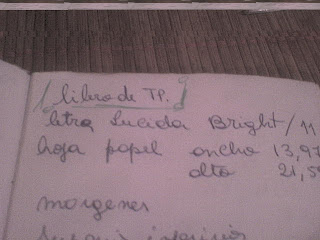 libro de TP.
letra Lucida Bright/11
hoja papel ancho 13,97
alto 21,5
margenes